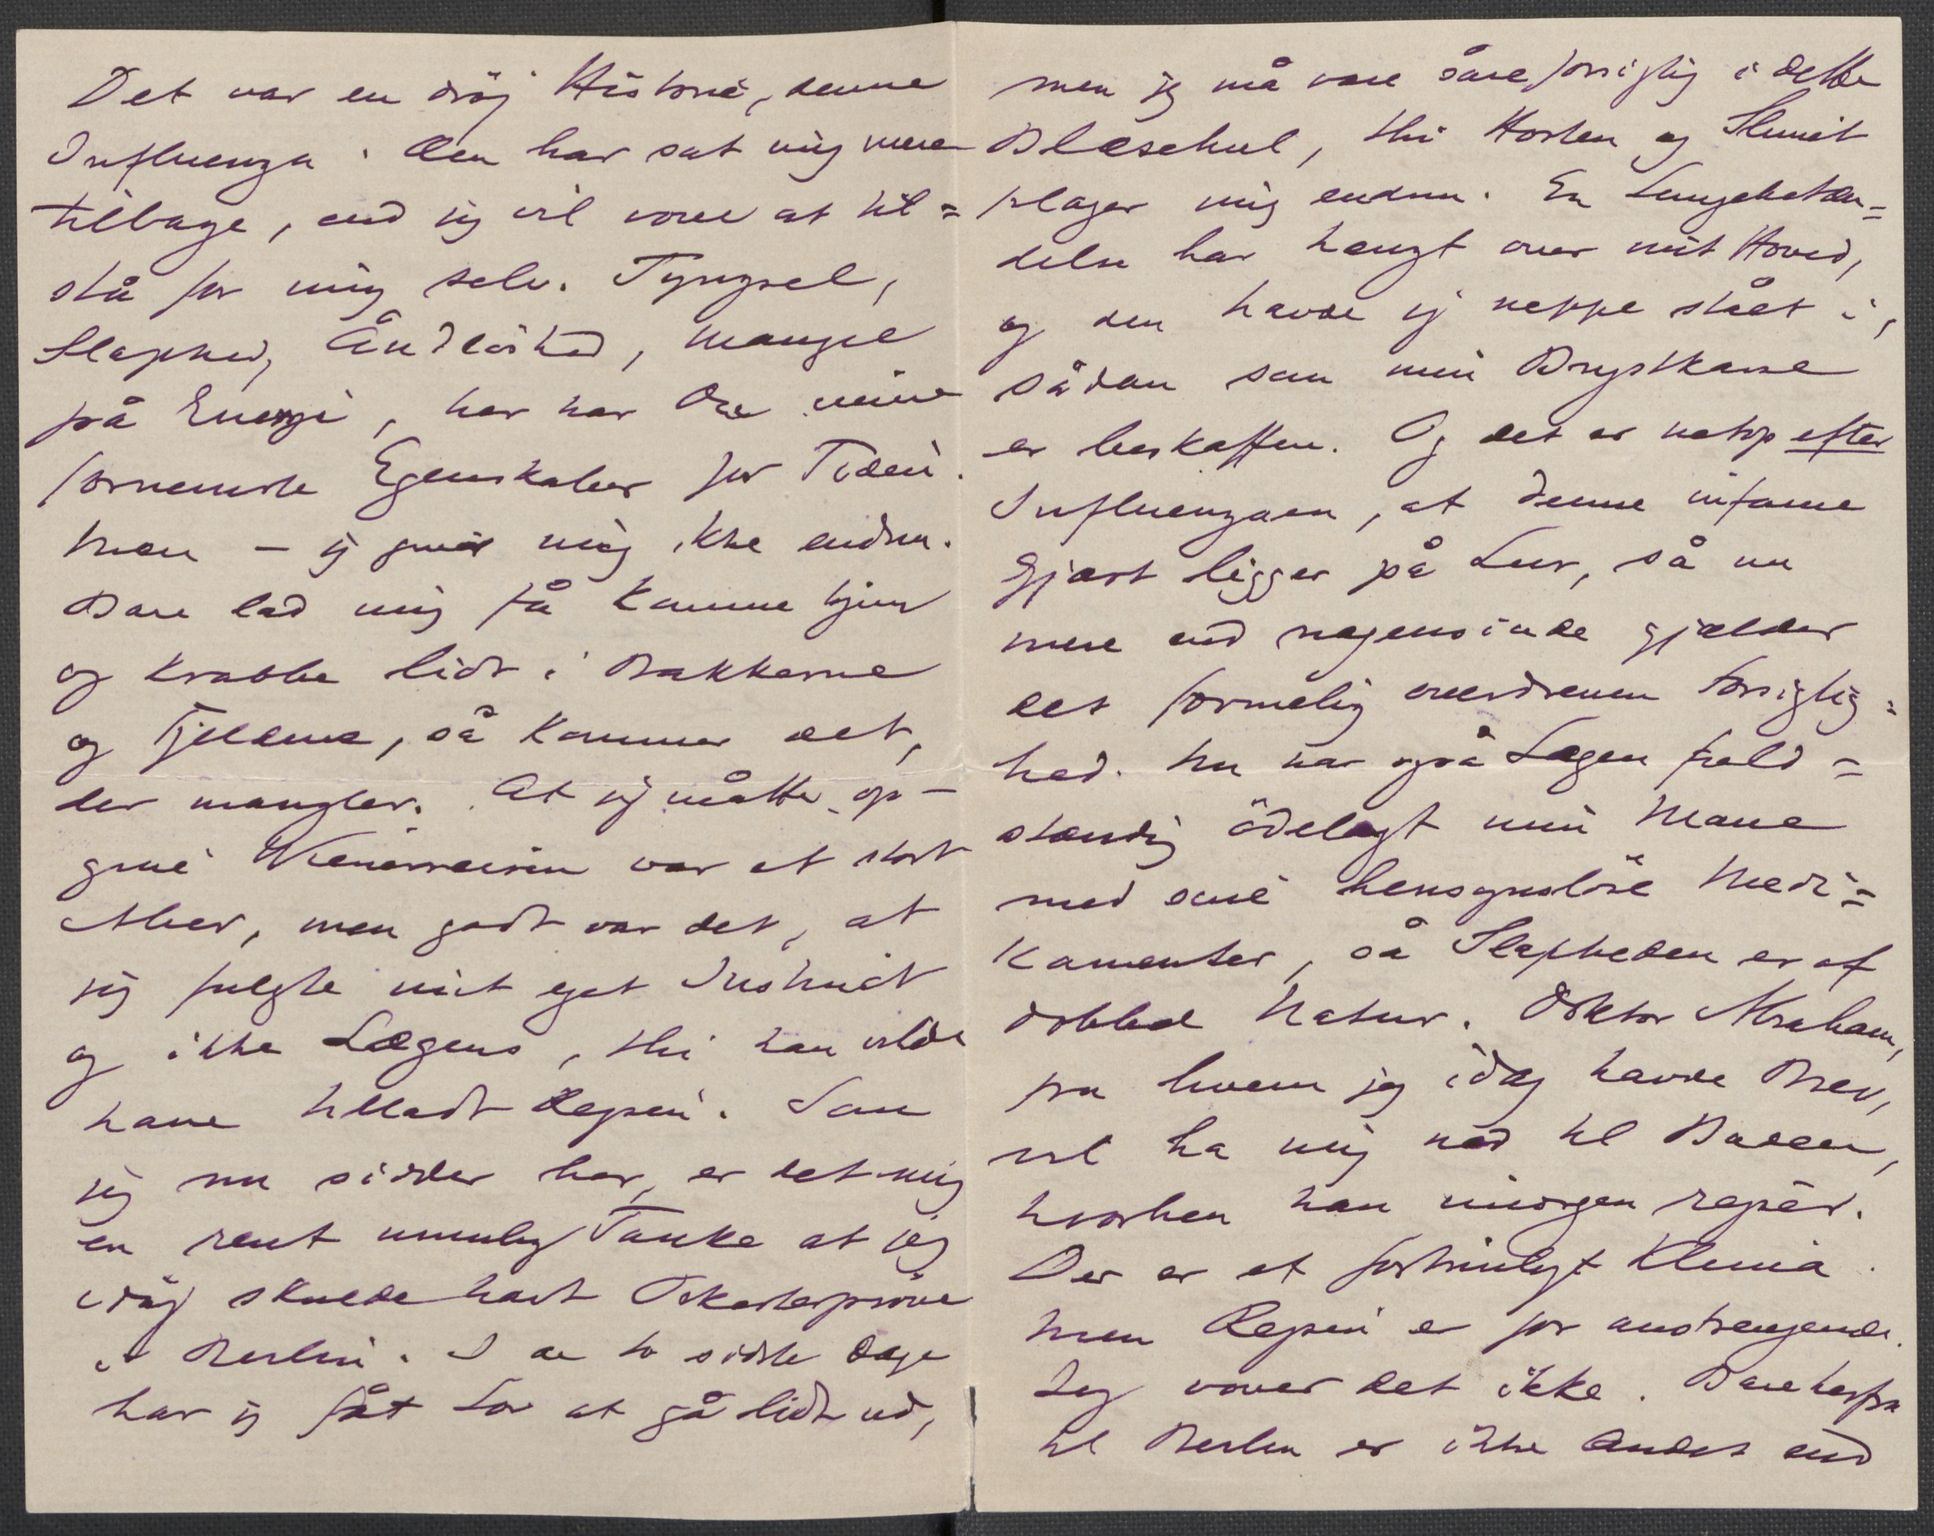 Det var en drøj Historie, denne
Influenza. Den har sat mig mere
tilbage, end jeg vil være at til=
stå for mig selv. Tyngsel,
Slaphed, Åndløshed, Mangel
på Energi, har har De mine
fornemste Egenskaber for Tiden.
Men – jeg gruer mig ikke endnu.
Bare lad mig få komme hjem
og krabbe lidt i Bakkerne
og Fjeldene, så kommer det,
der mangler. At jeg måtte op-
give Wienerreisen var et stort
Aber, men godt var det, at
jeg fulgte mit eget Instinkt
og ikke Lægens, thi han vilde
have tilladt Rejsen. Som
jeg nu sidder her, er det mig
en rent umulig Tanke at jeg
idag skulde havt Orkesterprøve
i Berlin. I de to sidste Dage
har jeg fåt Lov at gå lidt ud,
men jeg må være såre forsigtig i dette
Blæsehul, thi Hosten og Slimet
plager mig endnu. En Lungebetæn=
delse har hængt over mit Hoved,
og den havde jeg neppe stået i,
sådan som min Brystkasse
er beskaffen. Og det er netop efter
Influenzaen, at denne infame
Gjæst ligger på Lur, så nu
mere end nogensinde gjælder
det formelig overdreven Forsigtig=
hed. Nu har også Lægen fuld=
stændig ödelagt min Mave
med sine hensynslöse Medi=
kamenter, så Slapheden er af
dobbel Natur. Doktor Abraham,
fra hvem jeg idag havde Brev,
vil ha mig ned til Baden,
hvorhen han imorgen rejser.
Der er et fortrinligt Klima
men Rejsen er for anstrengende.
Jeg vover det ikke. Bare herfra
til Berlin er ikke Andet end